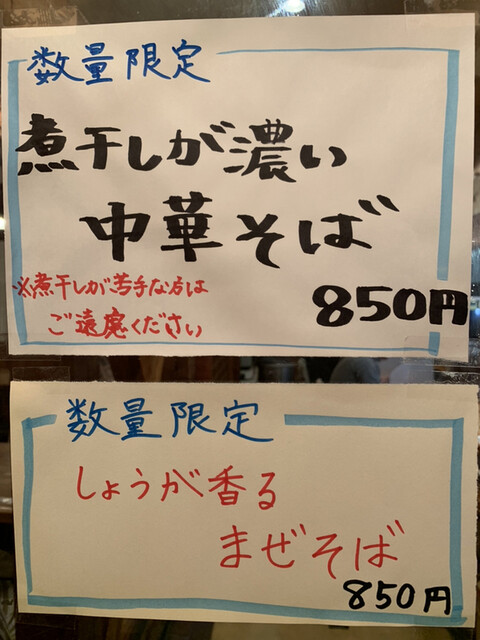 数量限定
煮干しが濃い
中華そば
※煮干しが苦手な方は
ご遠慮ください
850円
数量限定
しょうが香る
まぜそば
850円